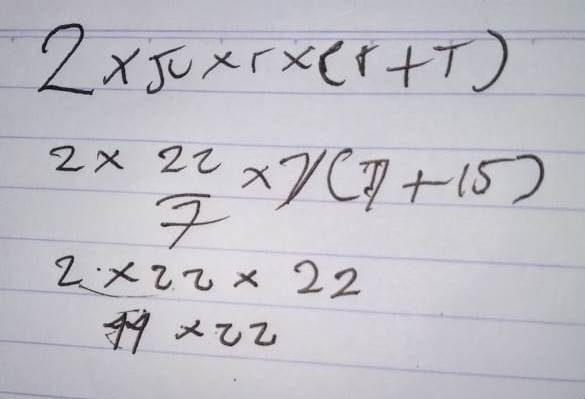 2 × π × r × (r + T)
2 × 22/7 × 7(7 + 15)
2 × 22 × 22
44 × 22